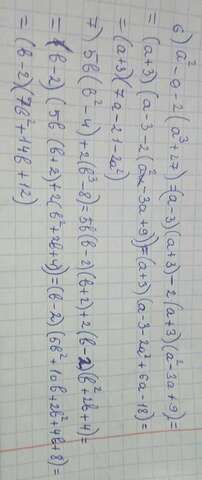 6) a² - 9 - 2(a³+27) = (a-3)(a+3) - 2(a+3)(a²-3a+9) =
= (a+3)(a-3-2(a²-3a+9)) = (a+3)(a-3-2a²+6a-18) =
= (a+3)(7a-21-2a²)
7) 5b(b²-4)+2(b³-8) = 5b(b-2)(b+2)+2(b-2)(b²+2b+4) =
= (b-2)(5b(b+2)+2(b²+2b+4)) = (b-2)(5b²+10b+2b²+4b+8) =
= (b-2)(7b²+14b+12)